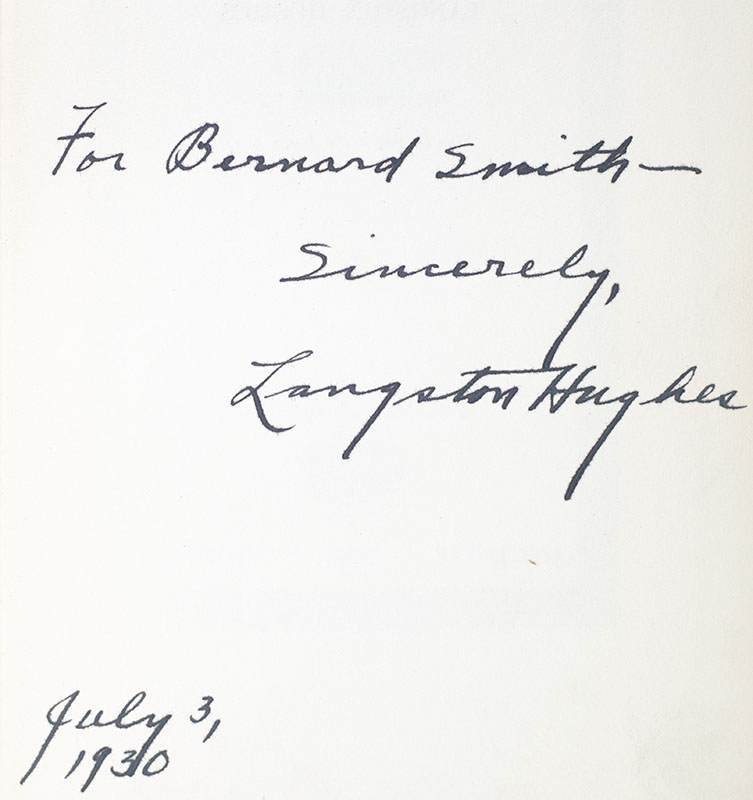 For Bernard Smith—
Sincerely,
Langston Hughes
July 3,
1930